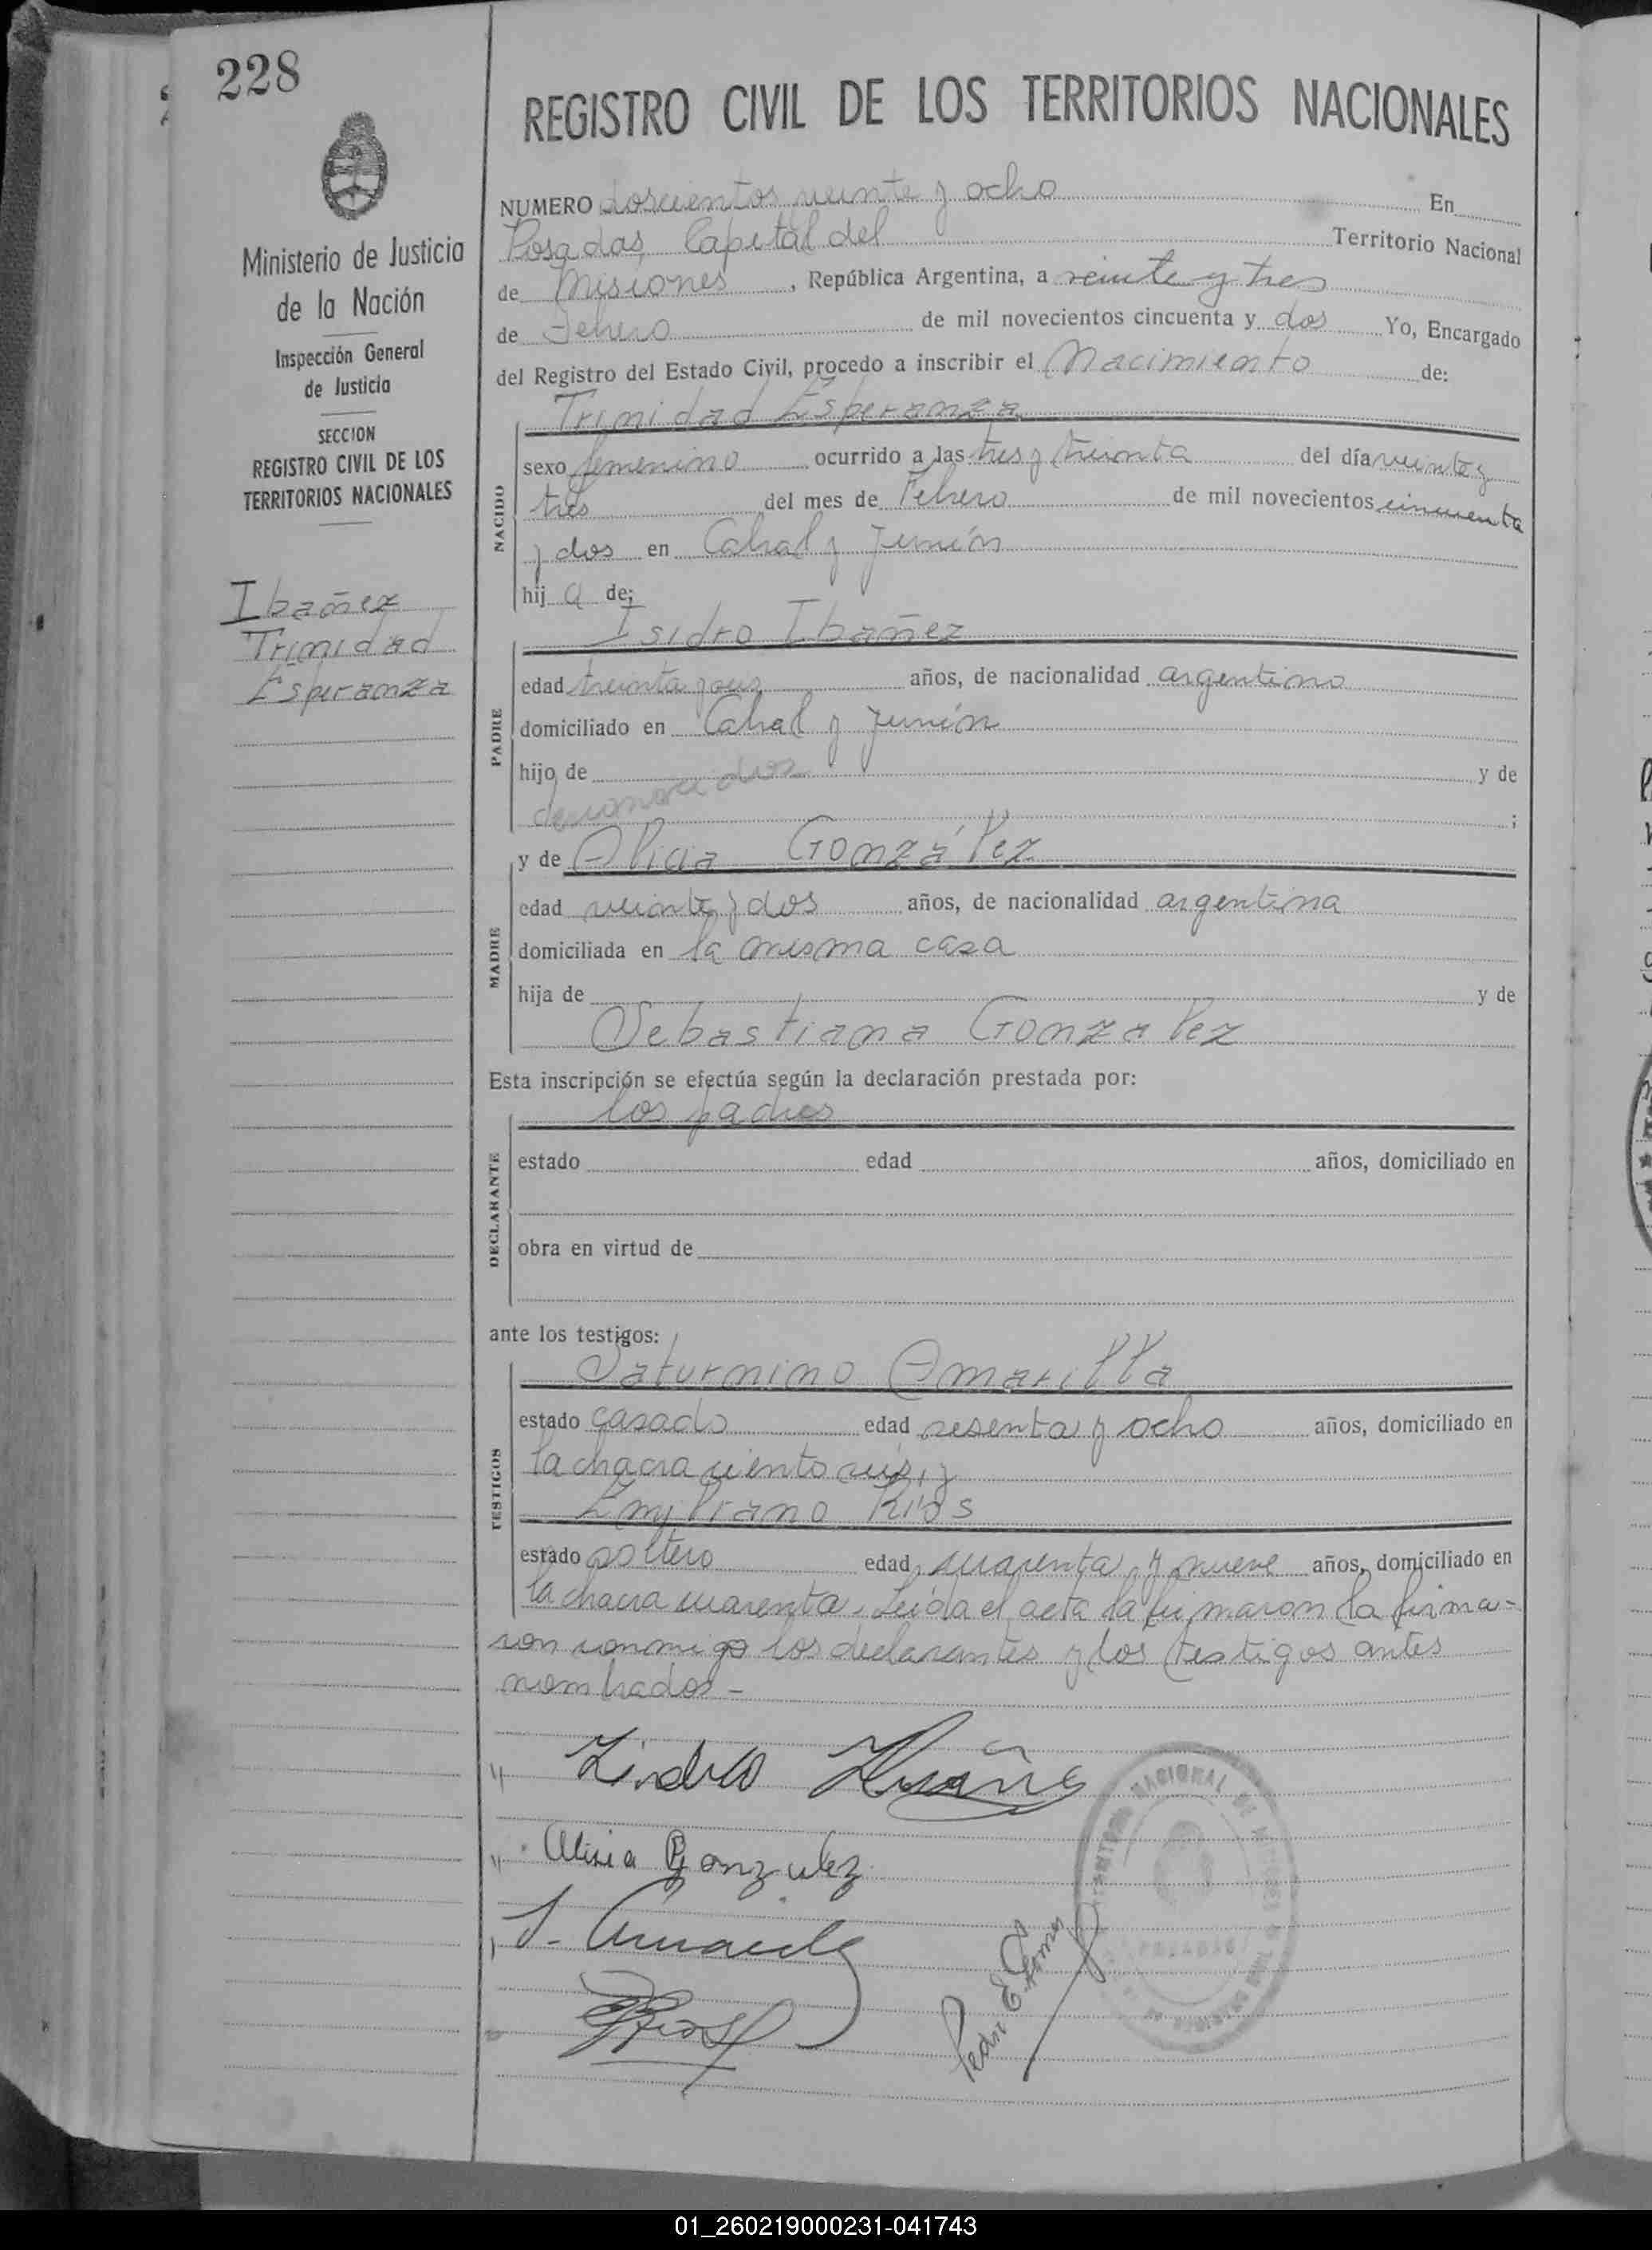 228
REGISTRO CIVIL DE LOS TERRITORIOS NACIONALES
Ministerio de Justicia
de la Nación
Inspección General
de Justicia
SECCION
REGISTRO CIVIL DE LOS
TERRITORIOS NACIONALES
Ibañez
Trinidad
Esperanza
NUMERO doscientos veinte y ocho En
Posadas, Capital del Territorio Nacional
de Misiones, República Argentina, a veinte y tres
de Febrero de mil novecientos cincuenta y dos Yo, Encargado
del Registro del Estado Civil, procedo a inscribir el Nacimiento de:
Trinidad Esperanza
NACIDO
sexo femenino ocurrido a las tres y treinta del día veinte y
tres del mes de Febrero de mil novecientos cincuenta
y dos en Cabral y Junín
hija de:
PADRE
Isidro Ibañez
edad treinta y años, de nacionalidad argentino
domiciliado en Cabral y Junín
hijo de y de
desconocidos ;
MADRE
y de Alicia González
edad veinte y dos años, de nacionalidad argentina
domiciliada en la misma casa
hija de y de
Sebastiana Gonzalez
Esta inscripción se efectúa según la declaración prestada por:
DECLARANTE
los padres
estado edad años, domiciliado en
obra en virtud de
ante los testigos:
TESTIGOS
Saturnino Amarilla
estado casado edad sesenta y ocho años, domiciliado en
la chacra ciento seis, y
Emiliano Ríos
estado soltero edad cuarenta y nueve años, domiciliado en
la chacra cuarenta. Leída el acta la firmaron la firma-
ron conmigo los declarantes y los testigos antes
nombrados -
Isidro Ibañez
Alicia Gonzalez
S. Amarilla
E Rios
Pedro E. Gomez
NACIONAL DE
POSADAS
01_260219000231-041743